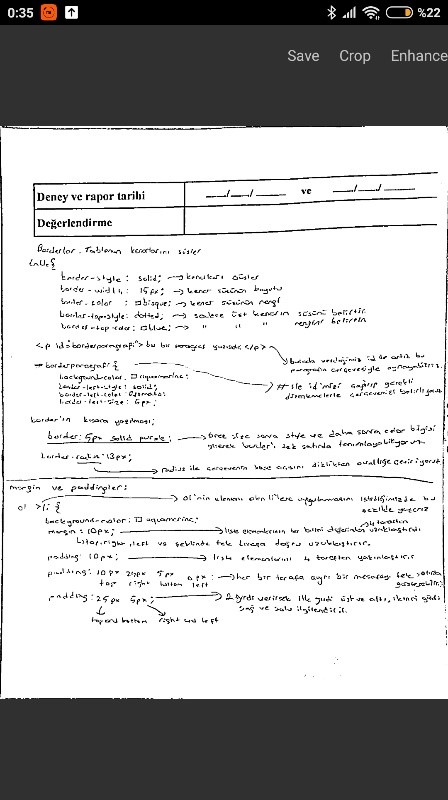 0:35
%22
Save Crop Enhance
Deney ve rapor tarihi __/__/____ ve __/__/____
Değerlendirme
Borderlar. Tablonun kenarlarını süsler
border-style: solid; → kenarları süsler
border-width: 15px; → kenar süsünün boyutu
border-color: bisque; → kenar süsünün rengi
border-top-style: dotted; → sadece üst kenarın süsünü belirtir
border-top-color: blue; → " " " rengini belirtir
<p id="borderparagrafi"> bu bir paragraf yazısıdır </p>
burada verdiğimiz id ile artık bu
paragrafın çerçevesiyle oynayabiliriz.
borderparagrafi {
background-color: aquamarine;
border-left-style: solid;
border-left-color:
border-left-size: 6px;
# ile id'mizi çağırıp gerekli
düzenlemelerle çerçevemizi belirliyoruz
border'ın kısaca yazılması:
border: 5px solid purple; → önce size sonra style ve daha sonra color bilgisi
girerek border'ı tek satırda tanımlayabiliyoruz
border-radius: 13px;
radius ile çerçevenin köşe açısını diklikten ovalliğe çeviriyoruz
margin ve paddingler:
ol > li {
ol'nin elemanı olan li'lere uygulamasını istediğimizde bu
şekilde yazarız
background-color: aquamarine;
margin: 10px; → liste elemanlarının her birini diğerinden uzaklaştırdı
4 taraftan
bottom, right, left ve şeklinde tek tarafa doğru uzaklaştırır.
padding: 10px; → liste elemanlarını 4 taraftan yakınlaştırır.
padding: 10px 25px 5px 0px; → her bir tarafa ayrı bir mesafeyi tek satırda
top right bottom left
padding: 25px 5px; → 2 girdi verirsek ilk girdi üst ve altı, ikinci girdi
sağ ve solu ilgilendirir.
top and bottom right and left